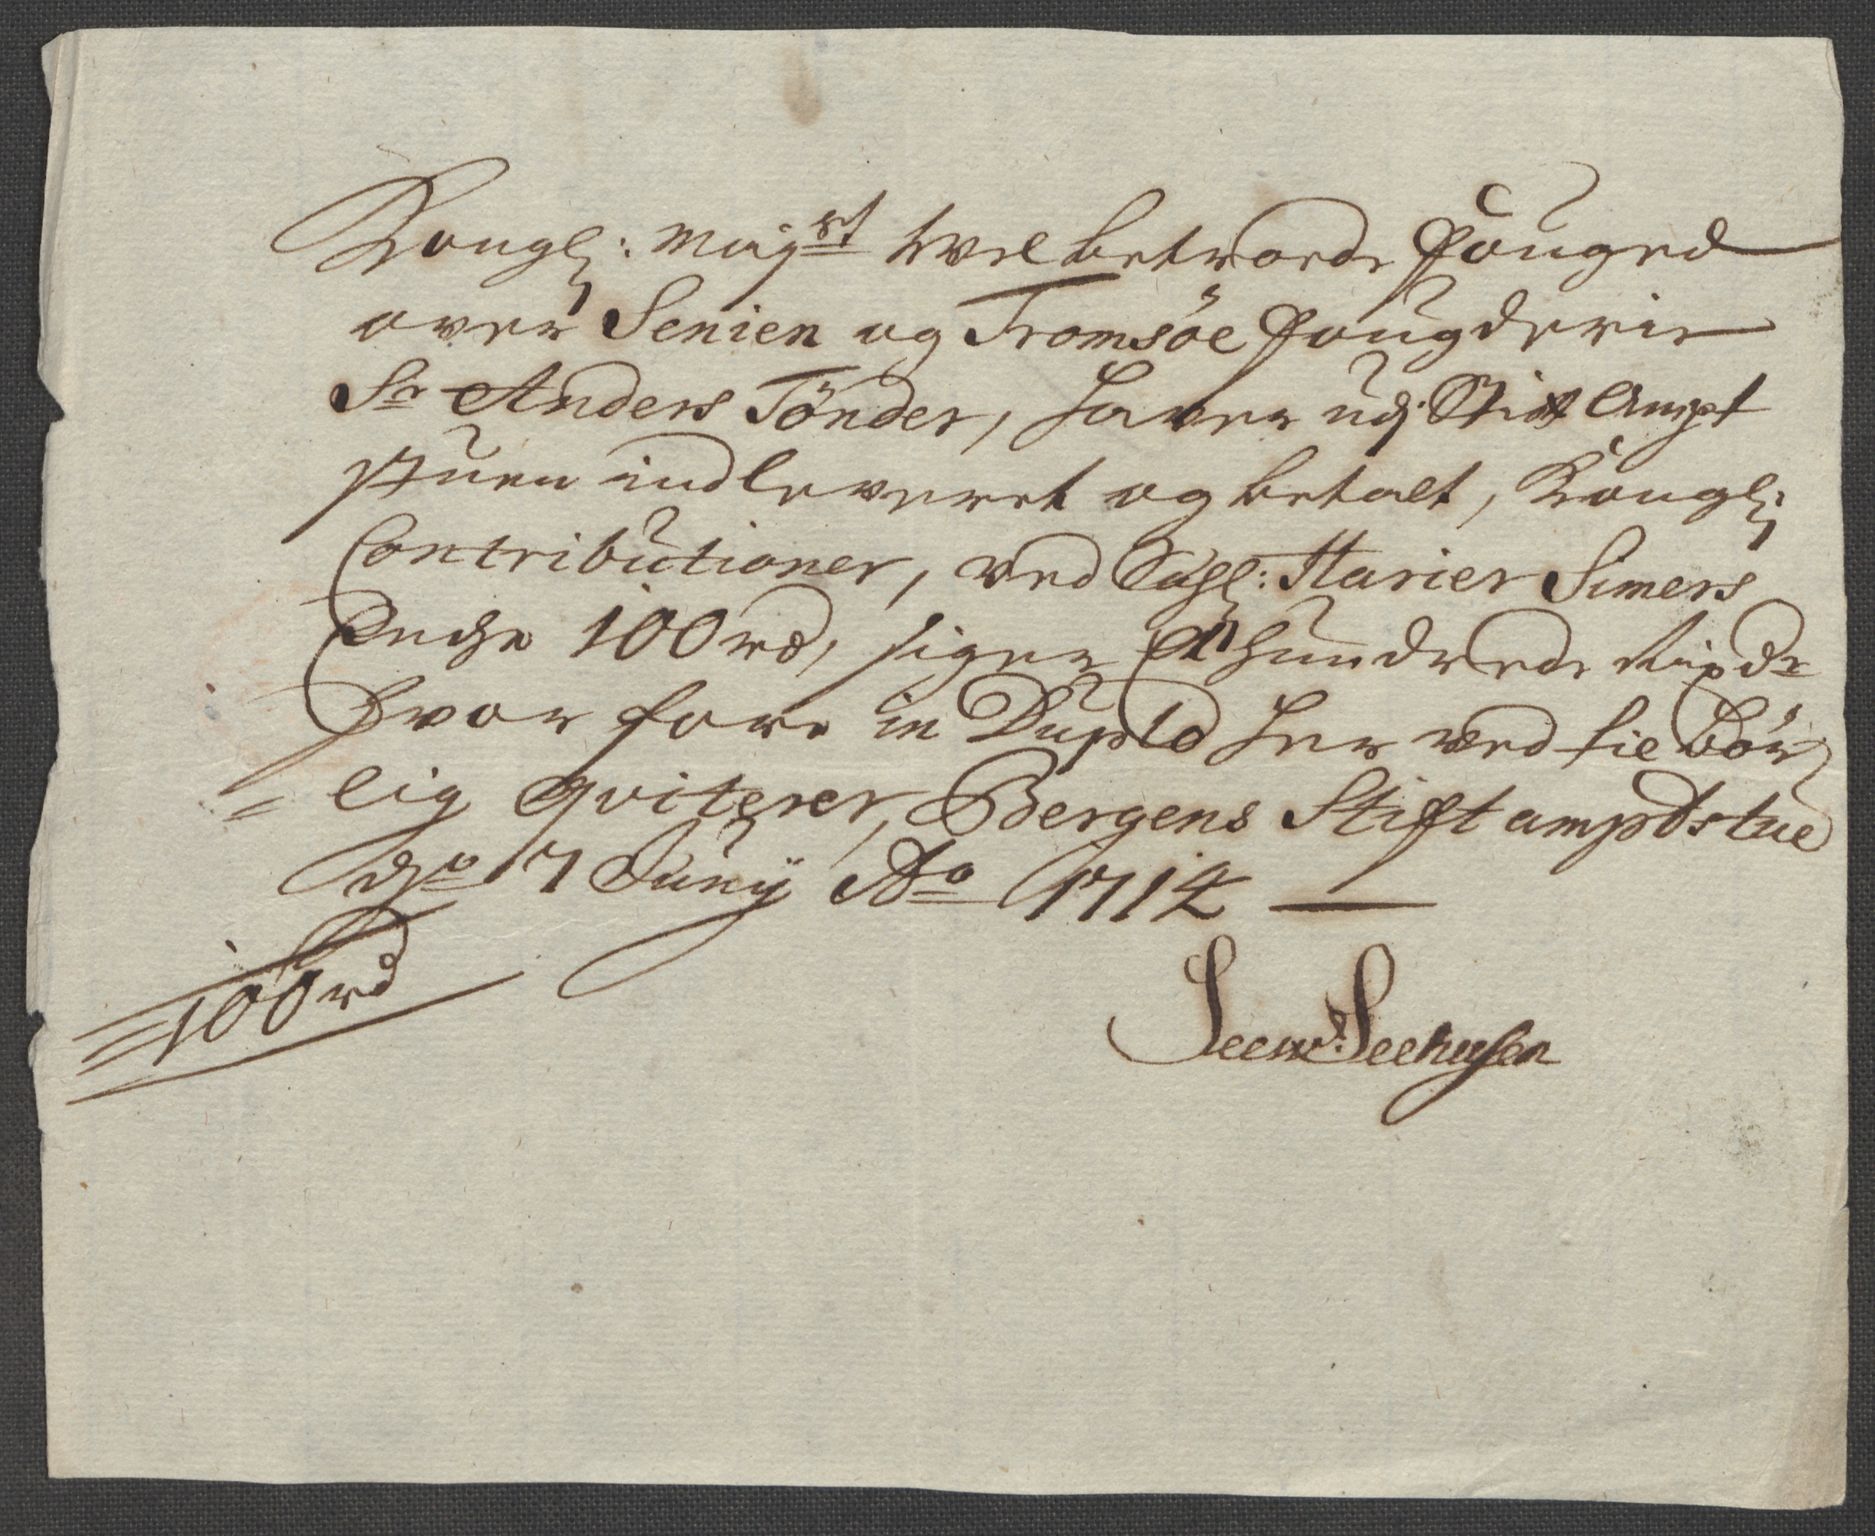 Kongl: Maÿst Wel betroede Fouged
over Senien og Tromsöe Fougderie
Sr Anders Tönder, haver udj Stift Ampt
stuen indleveret og betalt, Kongl:
Contributioner, ved Sahl: Harier Simers
Enche 100 rd, siger Et hundrede Rixdr
hvor fore in Duplo her ved tilbör
= lig qviterer, Bergens Stift ampbtstue
dn 7 Junÿ Ao 1714
100 rd
Seew: Seehusen